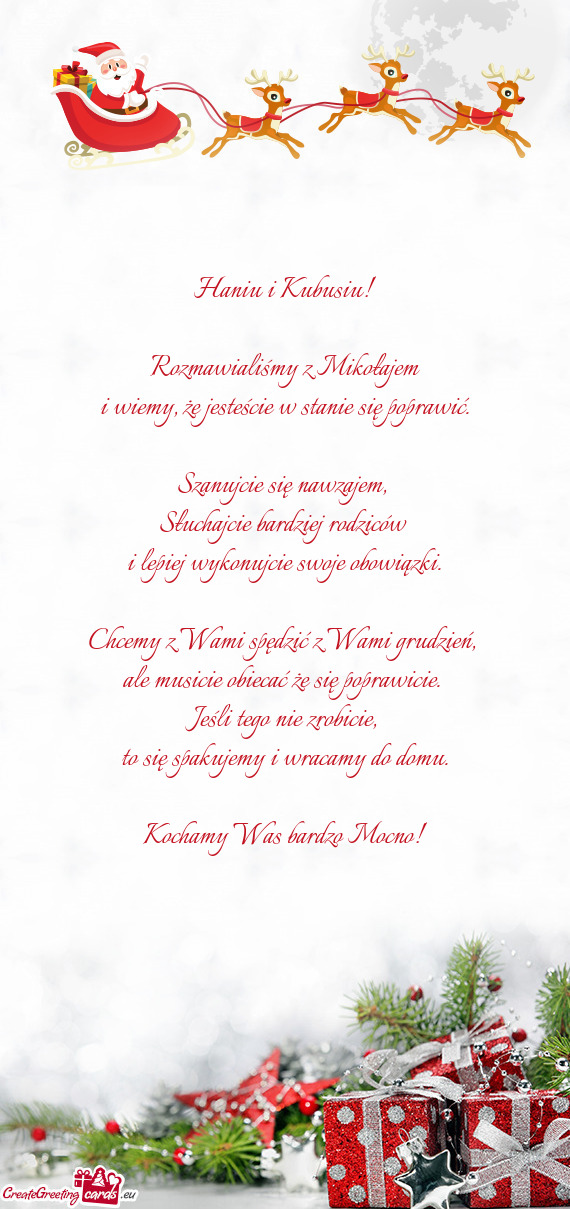 Haniu i Kubusiu!
Rozmawialiśmy z Mikołajem
i wiemy, że jesteście w stanie się poprawić.
Szanujcie się nawzajem,
Słuchajcie bardziej rodziców
i lepiej wykonujcie swoje obowiązki.
Chcemy z Wami spędzić z Wami grudzień,
ale musicie obiecać że się poprawicie.
Jeśli tego nie zrobicie,
to się spakujemy i wracamy do domu.
Kochamy Was bardzo Mocno!
CreateGreeting cards .eu